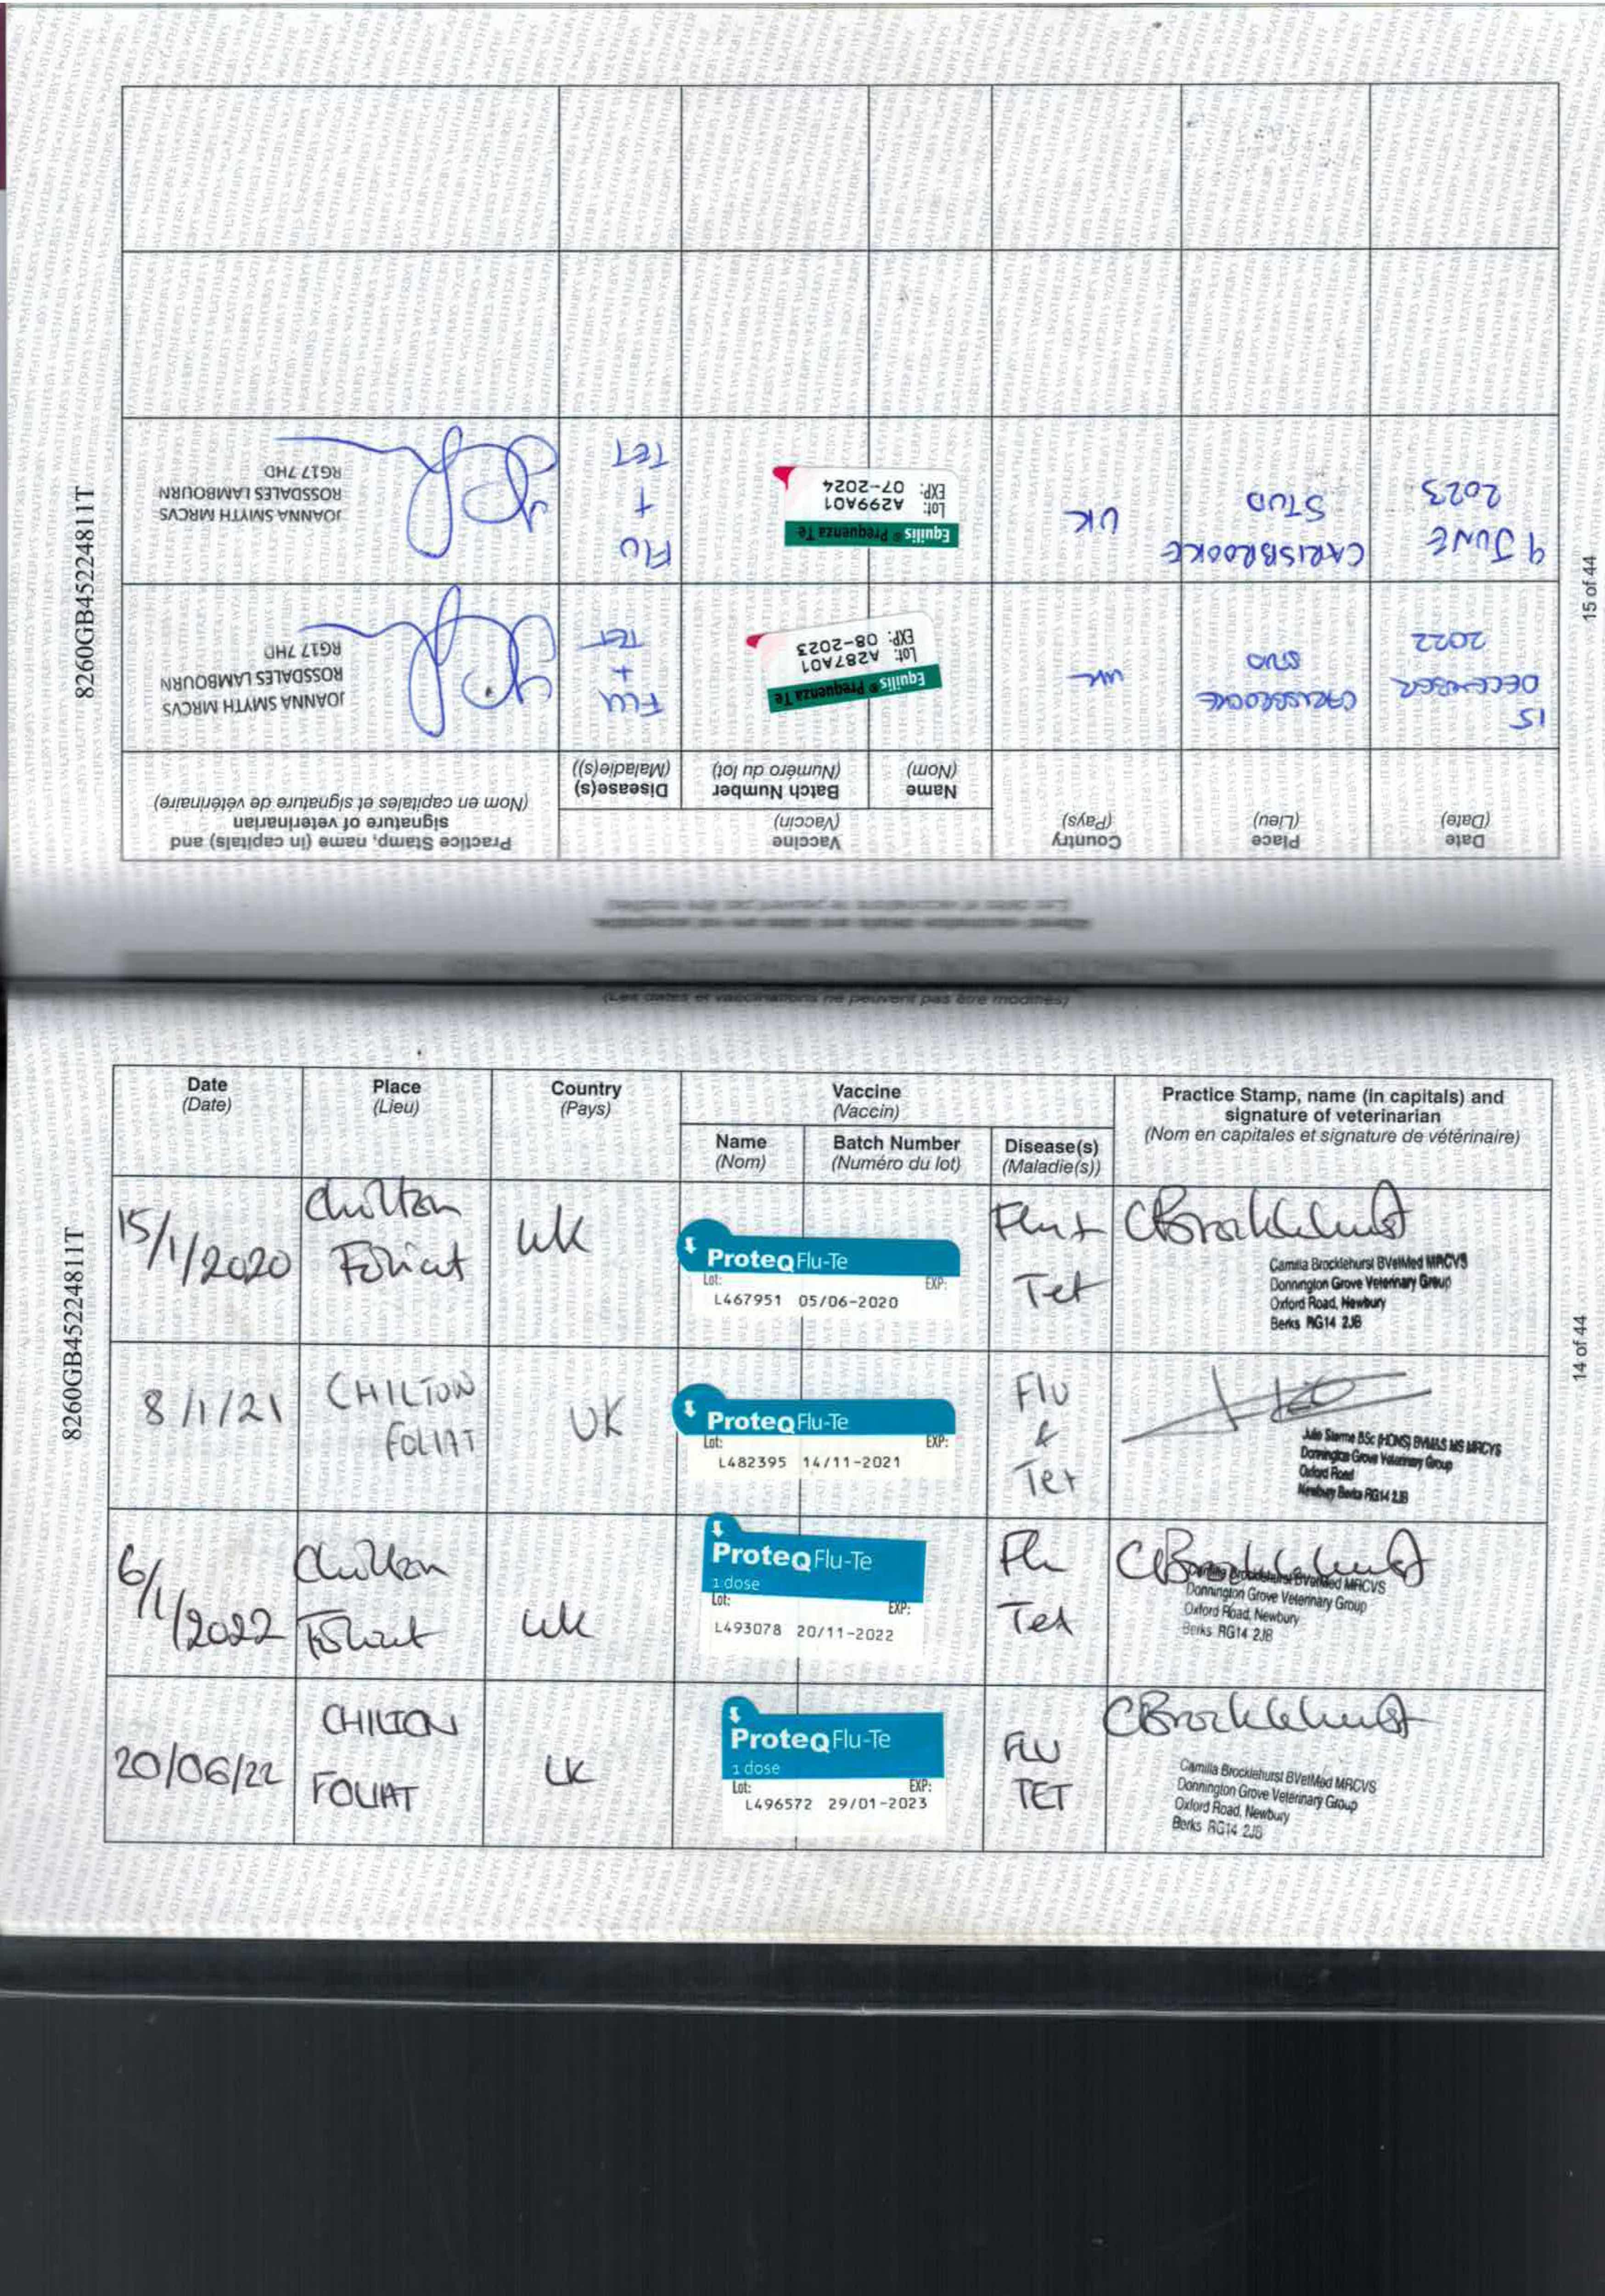 8260GB45224811T
15 of 44
Date
(Date)
Place
(Lieu)
Country
(Pays)
Vaccine
(Vaccin)
Name
(Nom)
Batch Number
(Numéro du lot)
Disease(s)
(Maladie(s))
Practice Stamp, name (in capitals) and
signature of veterinarian
(Nom en capitales et signature de vétérinaire)
15
DECEMBER
2022
CARISBROOKE
STUD
UK
Equilis® Prequenza Te
Lot: A287A01
EXP: 08-2023
FLU
+
TET
JOANNA SMYTH MRCVS
ROSSDALES LAMBOURN
RG17 7HD
9 JUNE
2023
CARISBROOKE
STUD
UK
Equilis® Prequenza Te
Lot: A299A01
EXP: 07-2024
FLU
+
TET
JOANNA SMYTH MRCVS
ROSSDALES LAMBOURN
RG17 7HD
(Les dates et vaccinations ne peuvent pas être modifiés)
8260GB45224811T
14 of 44
Date
(Date)
Place
(Lieu)
Country
(Pays)
Vaccine
(Vaccin)
Name
(Nom)
Batch Number
(Numéro du lot)
Disease(s)
(Maladie(s))
Practice Stamp, name (in capitals) and
signature of veterinarian
(Nom en capitales et signature de vétérinaire)
15/1/2020
Chilton
Foliat
UK
ProteqFlu-Te
Lot: EXP:
L467951 05/06-2020
Flu +
Tet
CBrocklehurst
Camilla Brocklehurst BVetMed MRCVS
Donnington Grove Veterinary Group
Oxford Road, Newbury
Berks RG14 2JB
8/1/21
CHILTON
FOLIAT
UK
ProteqFlu-Te
Lot: EXP:
L482395 14/11-2021
Flu
&
Tet
Julie Sterne BSc (HONS) BVM&S MS MRCVS
Donnington Grove Veterinary Group
Oxford Road
Newbury Berks RG14 2JB
6/1/2022
Chilton
Foliat
UK
ProteqFlu-Te
1 dose
Lot: EXP:
L493078 20/11-2022
Flu
Tet
CBrocklehurst
Camilla Brocklehurst BVetMed MRCVS
Donnington Grove Veterinary Group
Oxford Road, Newbury
Berks RG14 2JB
20/06/22
CHILTON
FOLIAT
UK
ProteqFlu-Te
1 dose
Lot: EXP:
L496572 29/01-2023
FLU
TET
CBrocklehurst
Camilla Brocklehurst BVetMed MRCVS
Donnington Grove Veterinary Group
Oxford Road, Newbury
Berks RG14 2JB